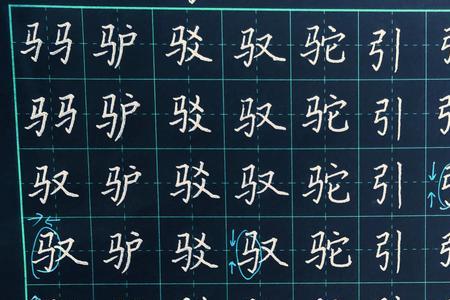 马马驴驳驭驼引
马马驴驳驭驼引
驭驴驳驭驼引
驭驴驳驭驼引